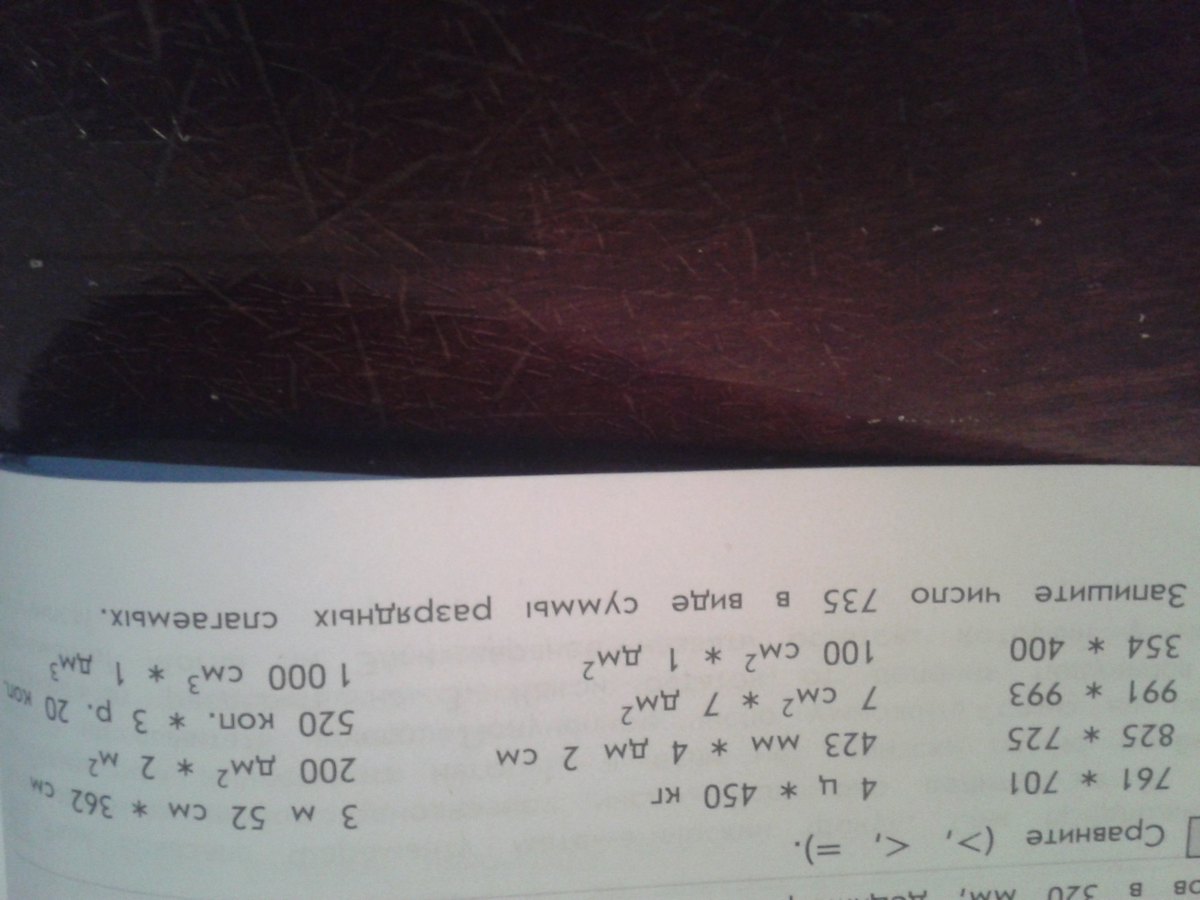 ов в 320 мм,
Сравните (>, <, =).
761 * 701 4 ц * 450 кг 3 м 52 см * 362 см
825 * 725 423 мм * 4 дм 2 см 200 дм² * 2 м²
991 * 993 7 см² * 7 дм² 520 коп. * 3 р. 20 коп.
354 * 400 100 см² * 1 дм² 1 000 см³ * 1 дм³
Запишите число 735 в виде суммы разрядных слагаемых.